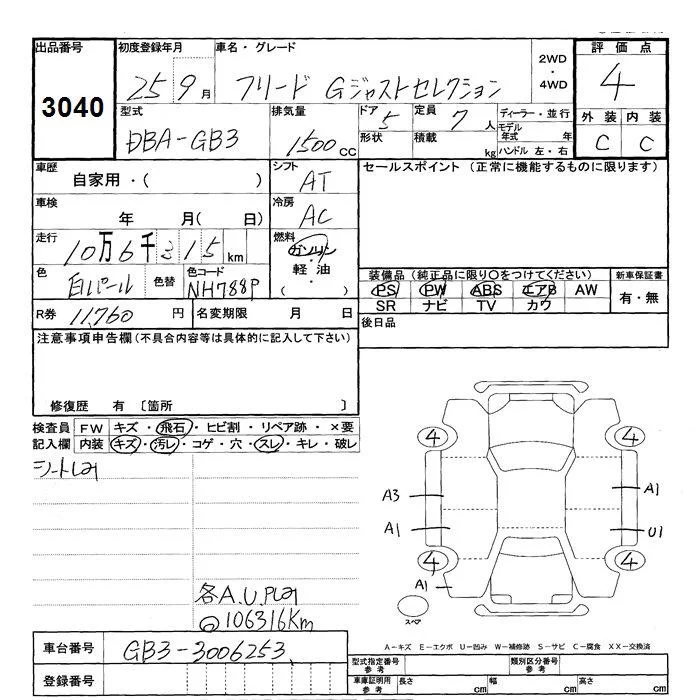 出品番号 初度登録年月 車名・グレード 評価点
3040 25 9月 フリード Gジャストセレクション 2WD・4WD 4
型式 排気量 ドア 定員 ディーラー・並行 外装 内装
DBA-GB3 1500cc 5 7人 モデル年式 年 C C
形状 積載 kg ハンドル 左・右
車歴 シフト セールスポイント (正常に機能するものに限ります)
自家用・( ) AT
車検 冷房
年 月( 日) AC
走行 燃料
10万6千315km ガソリン・軽油・( )
色 色替 色コード 装備品 (純正品に限り○をつけてください) 新車保証書
白パール NH788P PS PW ABS エアB AW 有・無
SR ナビ TV カワ
R券 11,760円 名変期限 月 日 後日品
注意事項申告欄 (不具合内容等は具体的に記入して下さい)
修復歴 有 〔箇所 〕
検査員 FW キズ・飛石・ヒビ割・リペア跡・×要
記入欄 内装 キズ・汚レ・コゲ・穴・スレ・キレ・破レ
4 4
A3 A1
A1 U1
4 4
A1
スペア
各A.U.
106316Km
A-キズ E-エクボ U-凹み W-補修跡 S-サビ C-腐食 XX-交換済
車台番号 GB3-3006253
登録番号
型式指定番号 参考 類別区分番号 参考
車庫証明用 参考 長さ cm 幅 cm 高さ cm